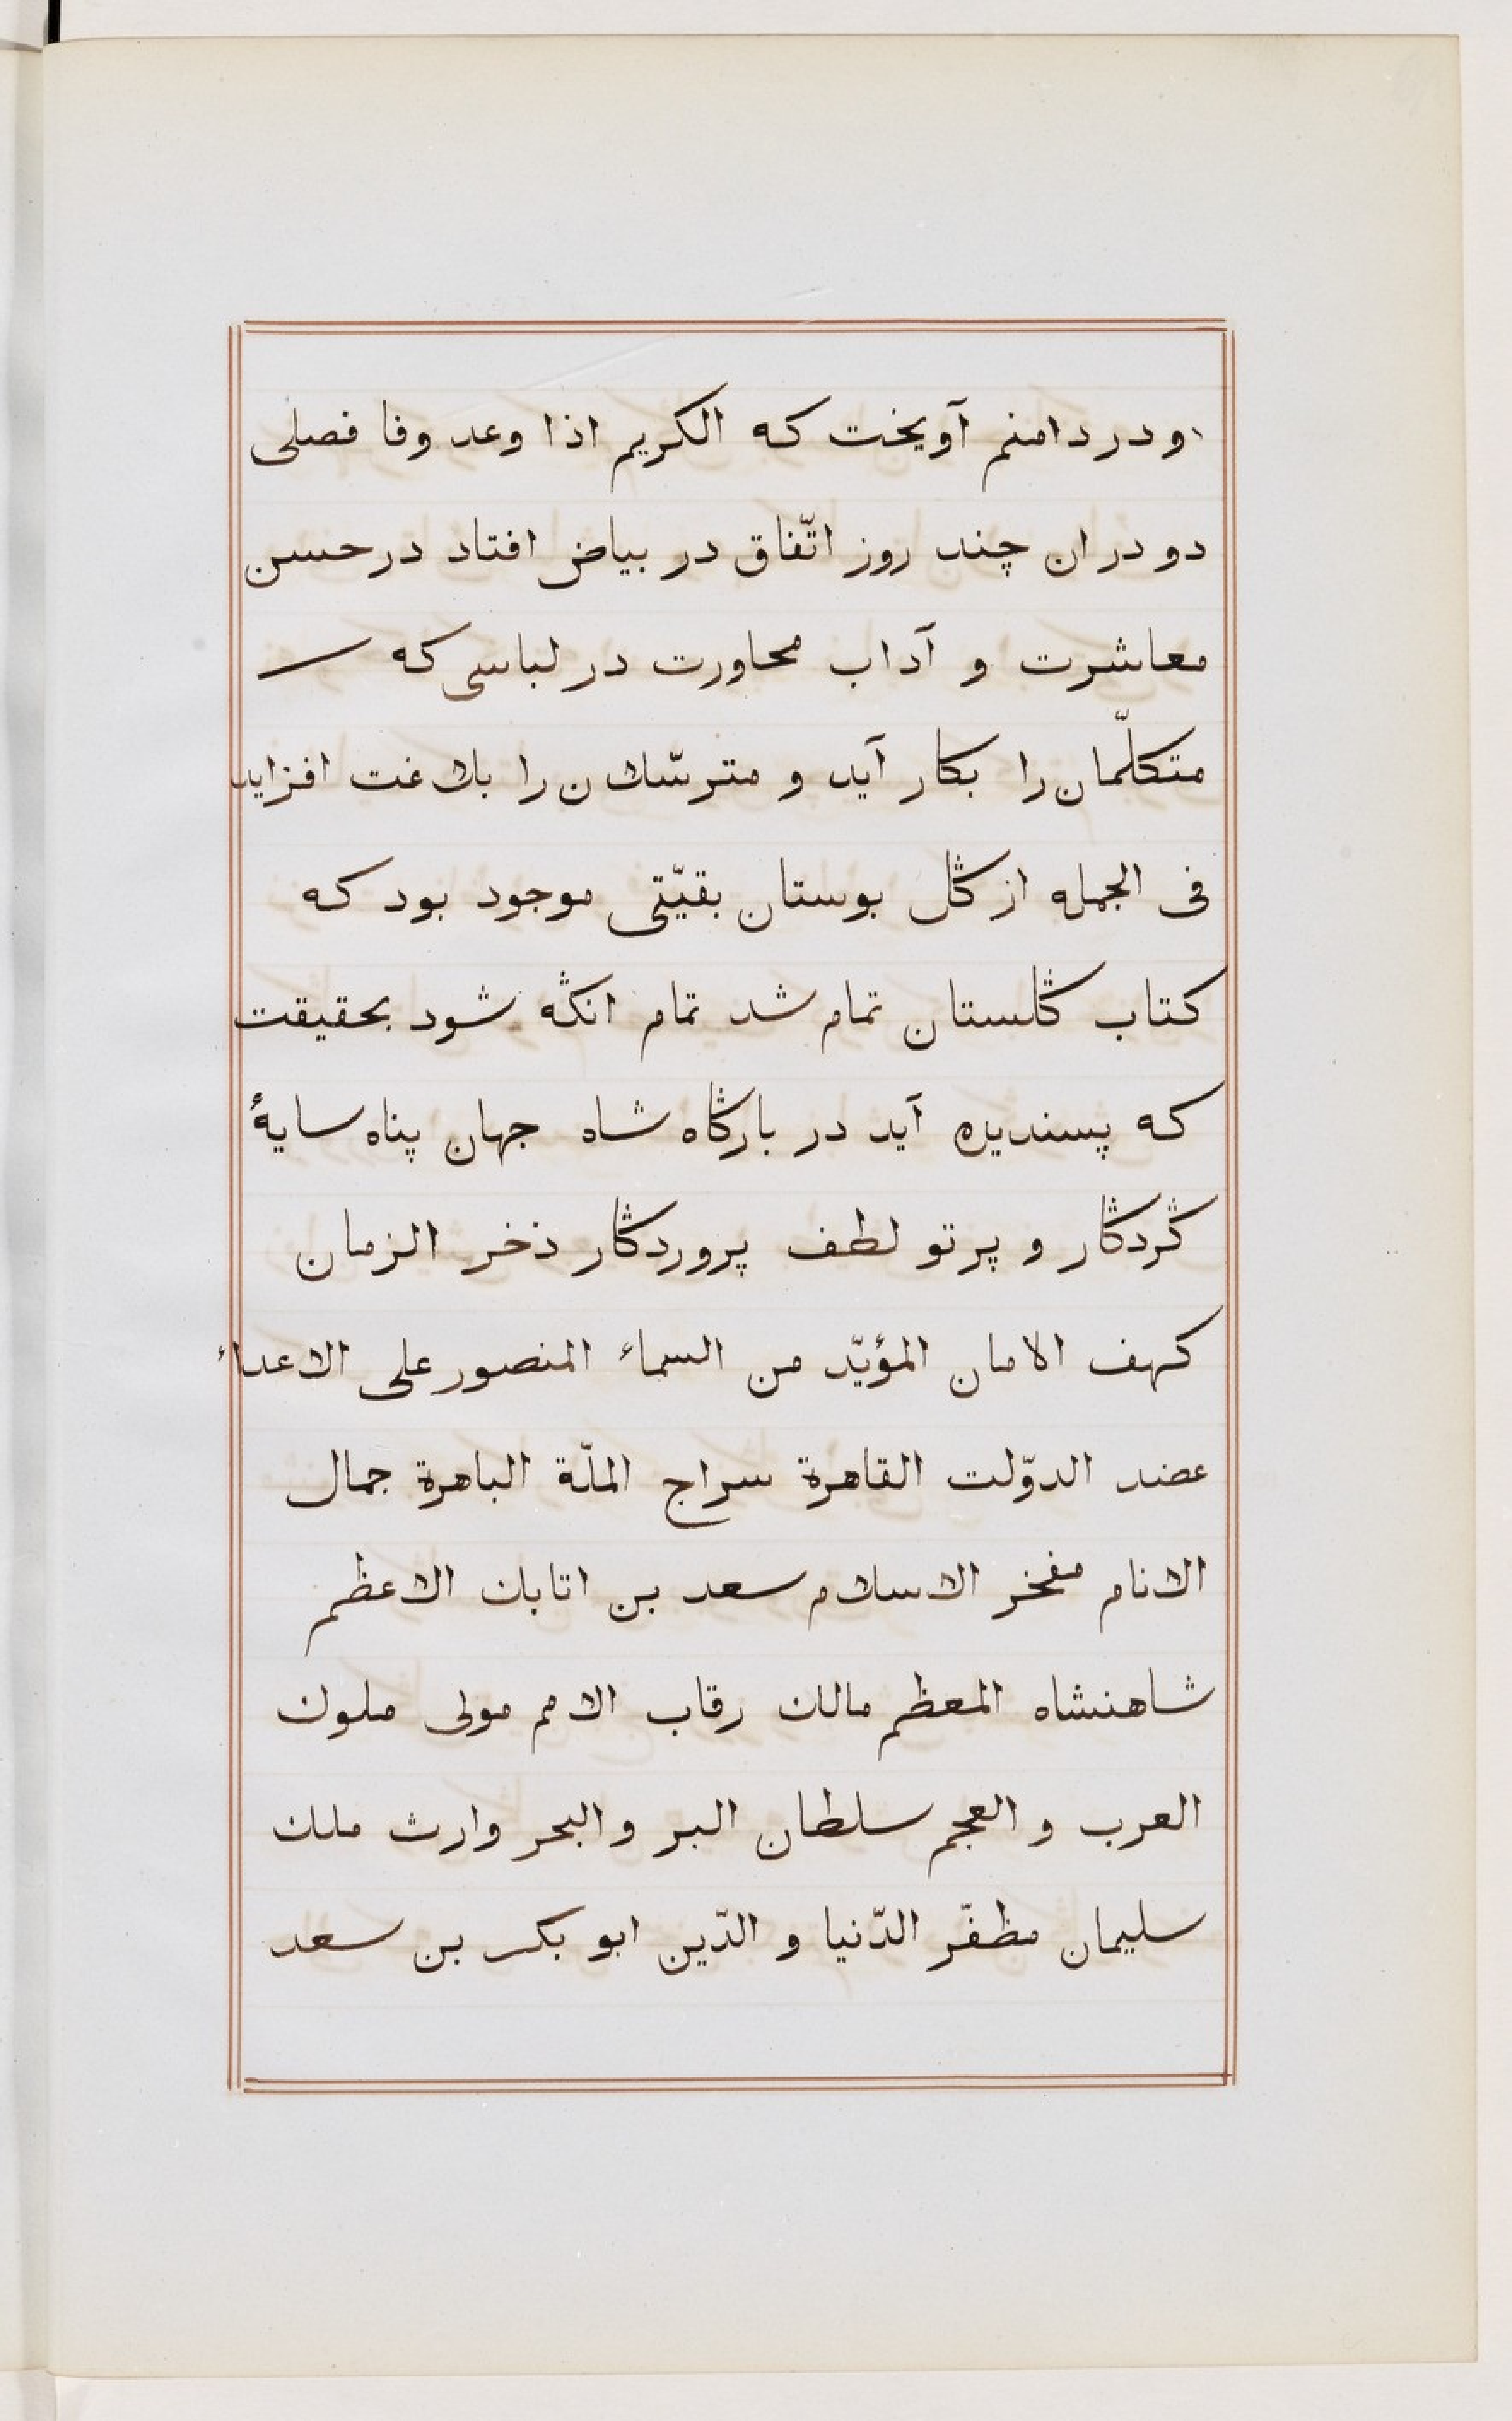 و در دامنم آویخت که الکریم اذا وعد وفا فصلی
دو در ان چند روز اتّفاق در بیاض افتاد در حسن
معاشرت و آداب محاورت در لباسی که
متکلّمان را بکار آید و مترسّلان را بلاغت افزاید
فی الجمله از گل بوستان بقیّتی موجود بود که
کتاب گلستان تمام شد تمام انگه شود بحقیقت
که پسندیده آید در بارگاه شاه جهان پناه سایهٔ
گردگار و پرتو لطف پروردگار ذخر الزمان
کهف الامان المؤیّد من السماء المنصور علی الاعداء
عضد الدوّلت القاهرة سراج الملّة الباهرة جمال
الانام مفخر الاسلام سعد بن اتابك الاعظم
شاهنشاه المعظم مالك رقاب الامم مولی ملوك
العرب و العجم سلطان البر والبحر وارث ملك
سلیمان مظفّر الدّنیا و الدّین ابو بکر بن سعد